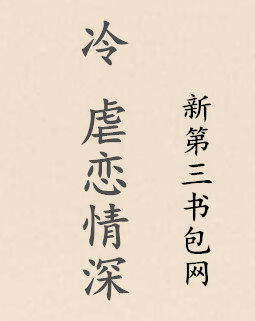 冷 虐恋情深
新第三书包网